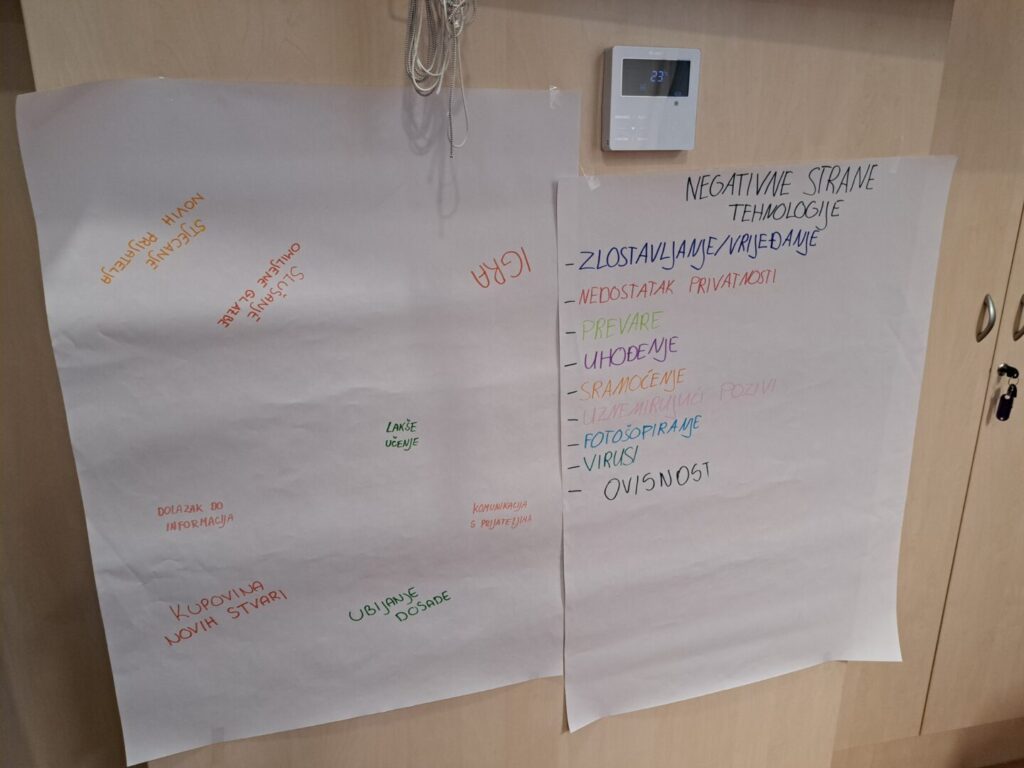 STJECANJE
NOVIH PRIJATELJA
SLUŠANJE
OMILJENE GLAZBE
IGRA
LAKŠE
UČENJE
DOLAZAK DO
INFORMACIJA
KOMUNIKACIJA
S PRIJATELJIMA
KUPOVINA
NOVIH STVARI
UBIJANJE
DOSADE
23°
NEGATIVNE STRANE
TEHNOLOGIJE
- ZLOSTAVLJANJE/VRIJEĐANJE
- NEDOSTATAK PRIVATNOSTI
- PREVARE
- UHOĐENJE
- SRAMOĆENJE
- UZNEMIRUJUĆI POZIVI
- FOTOŠOPIRANJE
- VIRUSI
- OVISNOST